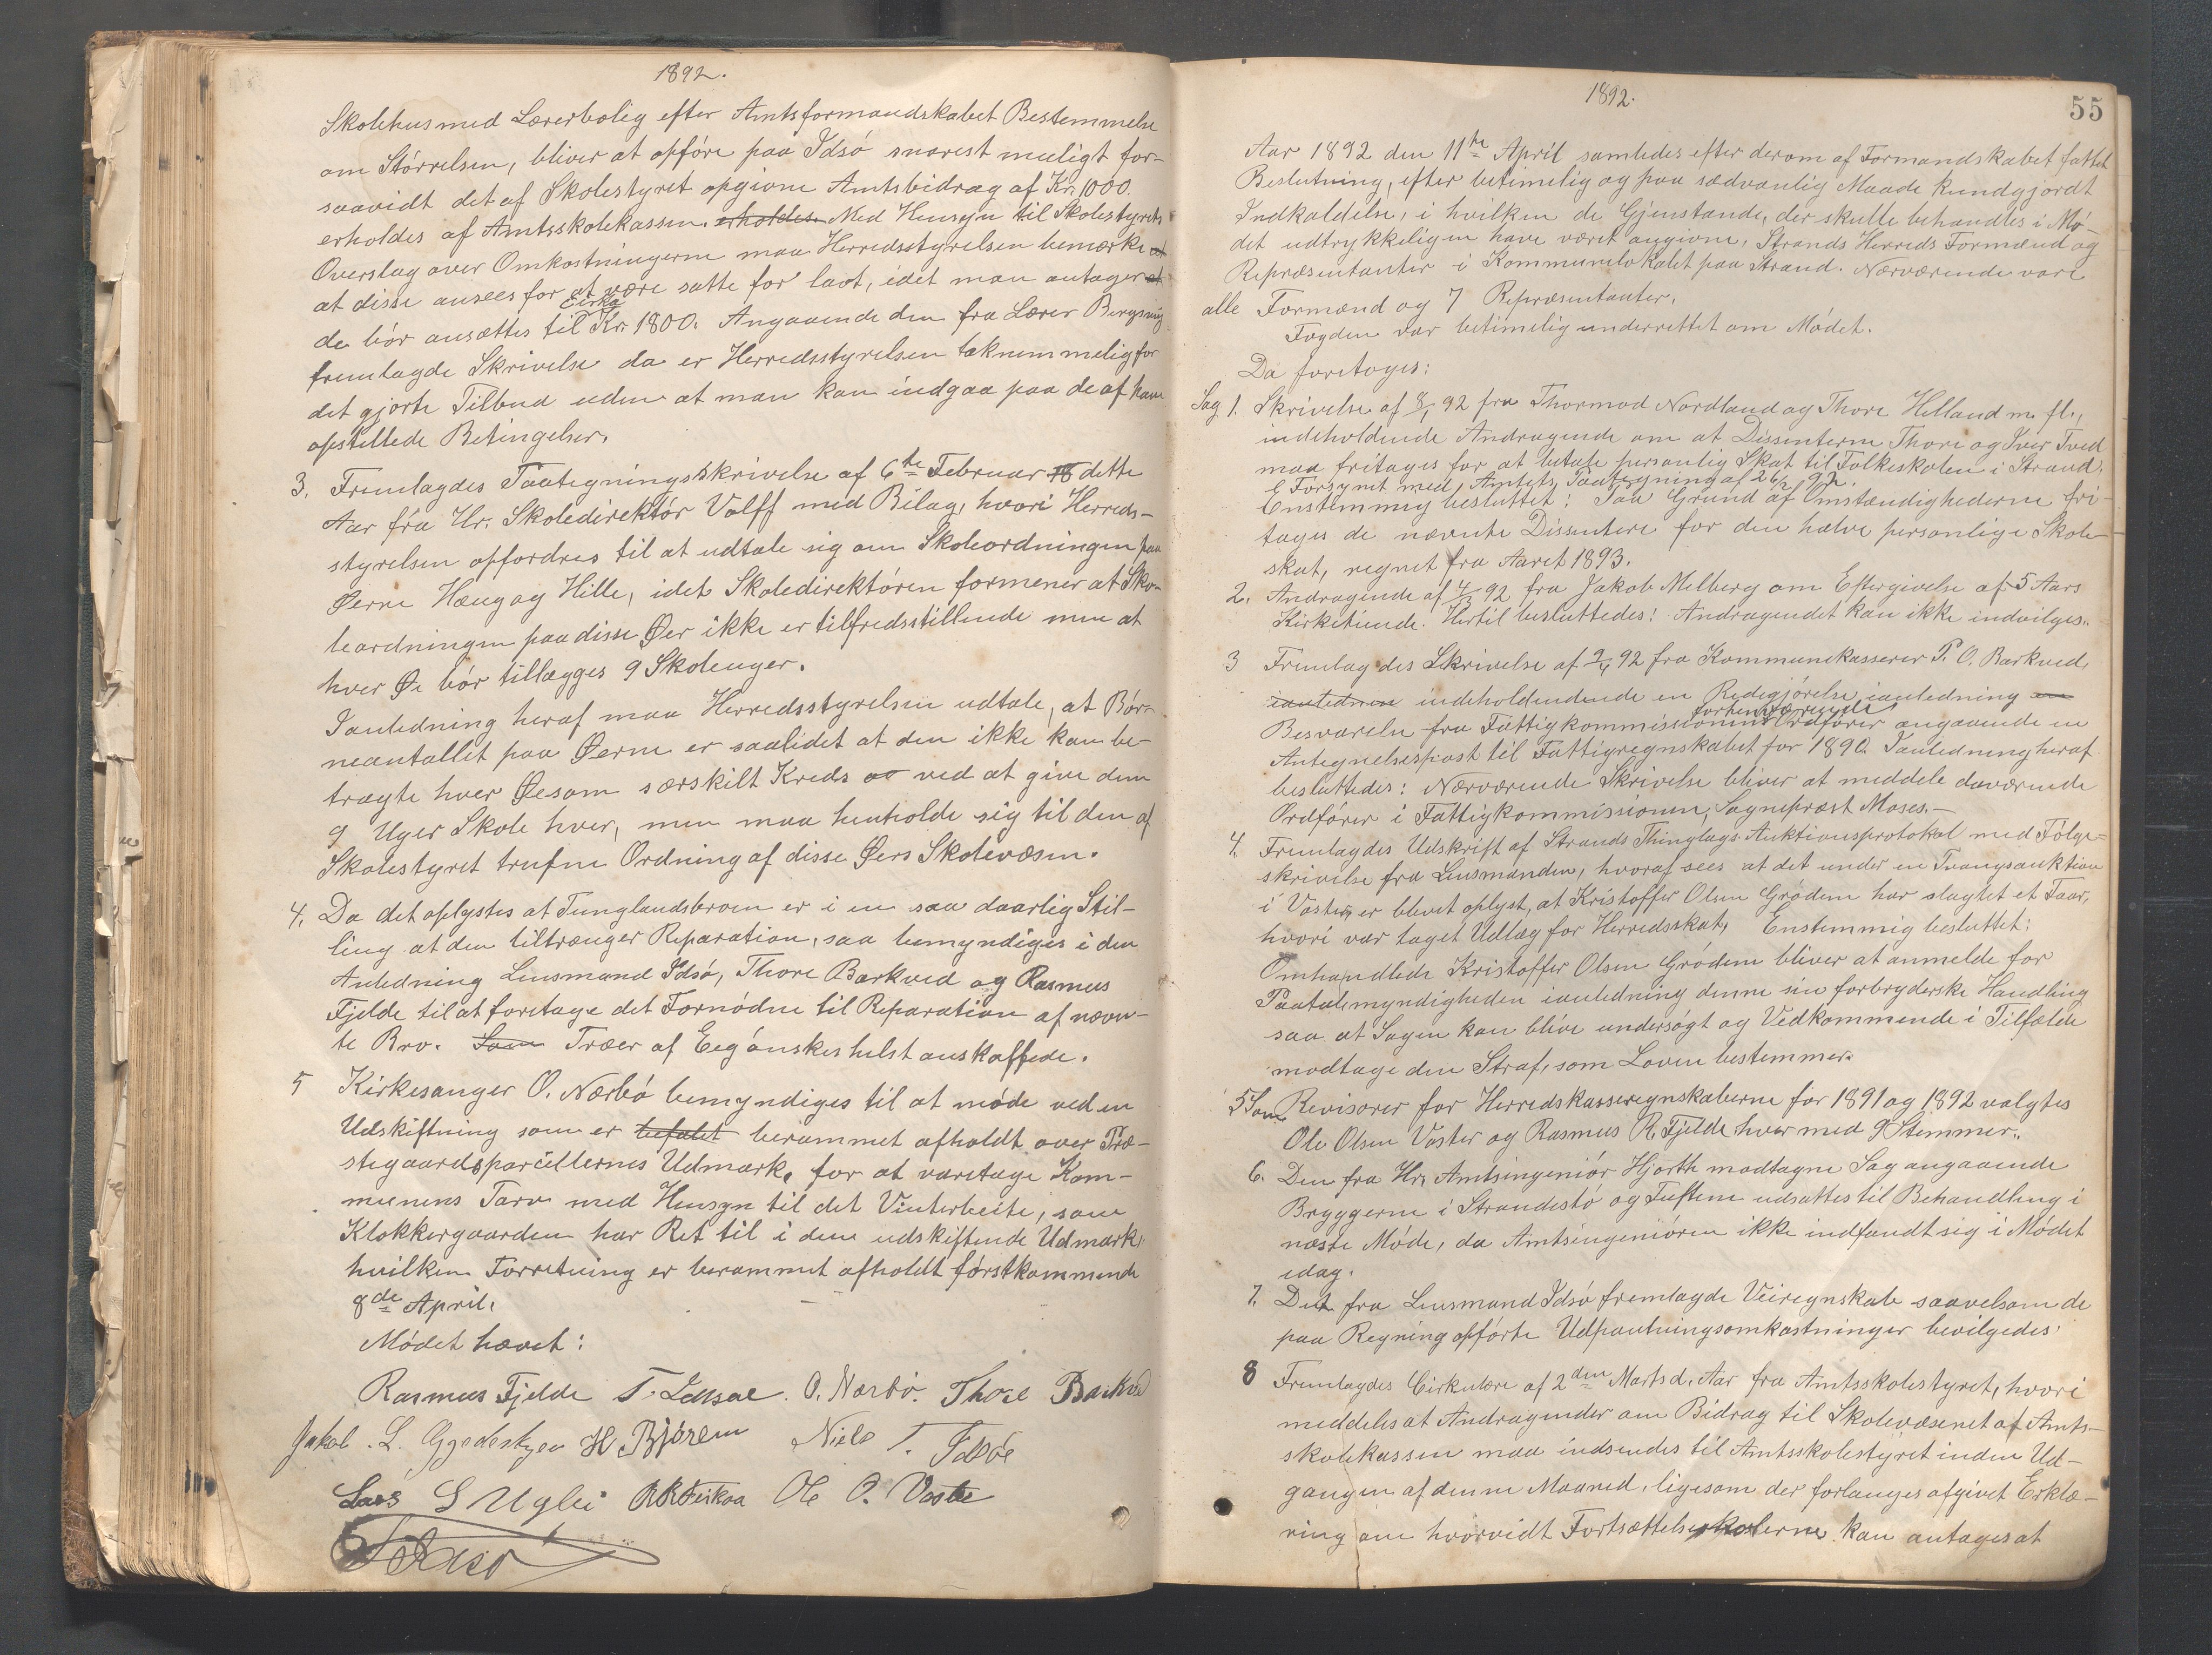 1892.
Skolehus med Lærerbolig efter Amtsformandskabet Bestemmelse
om Störrelsen, bliver at opföre paa Idsö snarest muligt for-
saavidt det af Skolestyret opgivne Amtsbidrag af Kr. 1000.
erholdes af Amtsskolekassen. erholdes Med Hensyn til Skolestyrets
Overslag over Omkostningerne maa Herredsstyrelsen bemærke at
at disse ansees for at være satte for lavt, idet man antager at
Cirka
de bör ansættes til Kr. 1800. Angaaende den fra Lærer Bergsning
fremlagde Skrivelse da er Herredsstyrelsen taknemmelig for
det gjorte Tilbud uden at man kan indgaa paa de af ham
opstillede Betingelser.
3. Fremlagdes Paategningsskrivelse af 6te Februar dette
Aar fra Hr. Skoledirektör Volff med Bilag, hvori Herreds-
styrelsen opfordres til at udtale sig om Skoleordningen paa
Øerne Heng og Hille, idet Skoledirektören formener at Sko-
leordningen paa disse Øer ikke er tilfredsstillende men at
hver Ø bör tillægges 9 Skoleuger.
Ianledning heraf maa Herredsstyrelsen udtale, at Bör-
neantallet paa Øerne er saalidet at den ikke kan be-
tragte hver Øe som særskilt Kreds ved at give dem
9 Uger Skole hver, men maa henholde sig til den af
Skolestyret trufne Ordning af disse Øers Skolevæsen.
4. Da det oplystes at Tunglandsbroen er i en saa daarlig Stil-
ling at den tiltrænger Reparation, saa bemyndiges i den
Anledning Lensmand Idsö, Thore Barkved og Rasmus
Fjelde til at foretage det Fornödne til Reparation af nævn-
te Bro. Som Træer af Eeg önskes helst anskaffede.
5 Kirkesanger O. Nærbö bemyndiges til at möde ved en
Udskiftning som er befalet berammet afholdt over Præ-
stegaardsparcellernes Udmark, for at varetage Kom-
munens Tarv med Hensyn til det Vinterbeite, som
Klokkergaarden har Ret til i den udskiftende Udmark,
hvilken Forretning er berammet afholdt förstkommende
8de April.
Mödet hævet:
Rasmus Fjelde T. O. Nærbö. Thore Barkved
Jakob L. H Björem Niels T. Idsöe
Lars S Uglei Ole O. Vaste
1892.
55
Aar 1892 den 11te April samledes efter derom af Formandskabet fattet
Beslutning, efter betimelig og paa sædvanlig Maade kundgjordt
Indkaldelse, i hvilken de Gjenstande, der skulle behandles i Mö-
det udtrykkeligen have været angivne, Strands Herreds Formænd og
Repræsentanter i Kommunelokalet paa Strand. Nærværende vare
alle Formænd og 7 Repræsentanter.
Fogden var betimelig underrettet om Mödet.
Da foretoges:
Sag 1. Skrivelse af 8/1 92 fra Thormod Nordland og Thore Helland m. fl.,
indeholdende Andragende om at Dissenterne Thore og Iver Tved
maa fritages for at betale personlig Skat til Folkeskolen i Strand.
Forsynet med Amtets Paategning af 26/2 92.
Enstemmig besluttet: Paa Grund af Omstændighederne fri-
tages de nævnte Dissentere for den halve personlige Skole-
skat, regnet fra Aaret 1893.
2. Andragende af 4/3 92 fra Jakob Melberg om Eftergivelse af 5 Aars
Kirketiende. Hertil besluttedes: Andragendet kan ikke indvilges.
3 Fremlagdes Skrivelse af 2/4 92 fra Kommunekasserer P. O. Barkved,
indeholdendende en Redegjörelse ianledning
forhenværende
Besvarelse fra Fattigkommissionens Ordförer angaaende en
Antegnelsespost til Fattigregnskabet for 1890. Ianledning heraf
besluttedes: Nærværende Skrivelse bliver at meddele daværende
Ordförer i Fattigkommissionen, Sogneprest Moses.-
4. Fremlagdes Udskrift af Strands Thinglags Auktionsprotokol med Fölge-
skrivelse fra Lensmanden, hvoraf sees at det under en Tvangsauktion
i Vaster er blevet oplyst, at Kristoffer Olsen Grödem har slagtet et Faar,
hvori var taget Udlæg for Herredsskat, Enstemmig besluttet:
Omhandlede Kristoffer Olsen Grödem bliver at anmelde for
Paatalemyndigheden ianledning denne sin forbryderske Handling
saa at Sagen kan blive undersögt og Vedkommende i Tilfælde
modtage den Straf, som Loven bestemmer.
5 Som Revisorer for Herredskasseregnskaberne for 1891 og 1892 valgtes
Ole Olsen Vaster og Rasmus R. Fjelde hver med 9 Stemmer.
6. Den fra Hr. Amtsingeniör Hjorth modtagne Sag angaaende
Bryggerne i Strandestö og Tuften udsattes til Behandling i
næste Möde, da Amtsingeniören ikke indfandt sig i Mödet
idag.
7. Det fra Lensmand Idsö fremlagde Veiregnskab saavelsom de
paa Regning opförte Udpantningsomkostninger bevilgedes.
8 Fremlagdes Cirkulære af 2den Marts d. Aar fra Amtsskolestyret, hvori
meddeles at Andragender om Bidrag til Skolevæsenet af Amts-
skolekassen maa indsendes til Amtsskolestyret inden Ud-
gangen af denne Maaned, ligesom der forlanges afgivet Erklæ-
ring om hvorvidt Fortsættelsesskolerne kan antages at